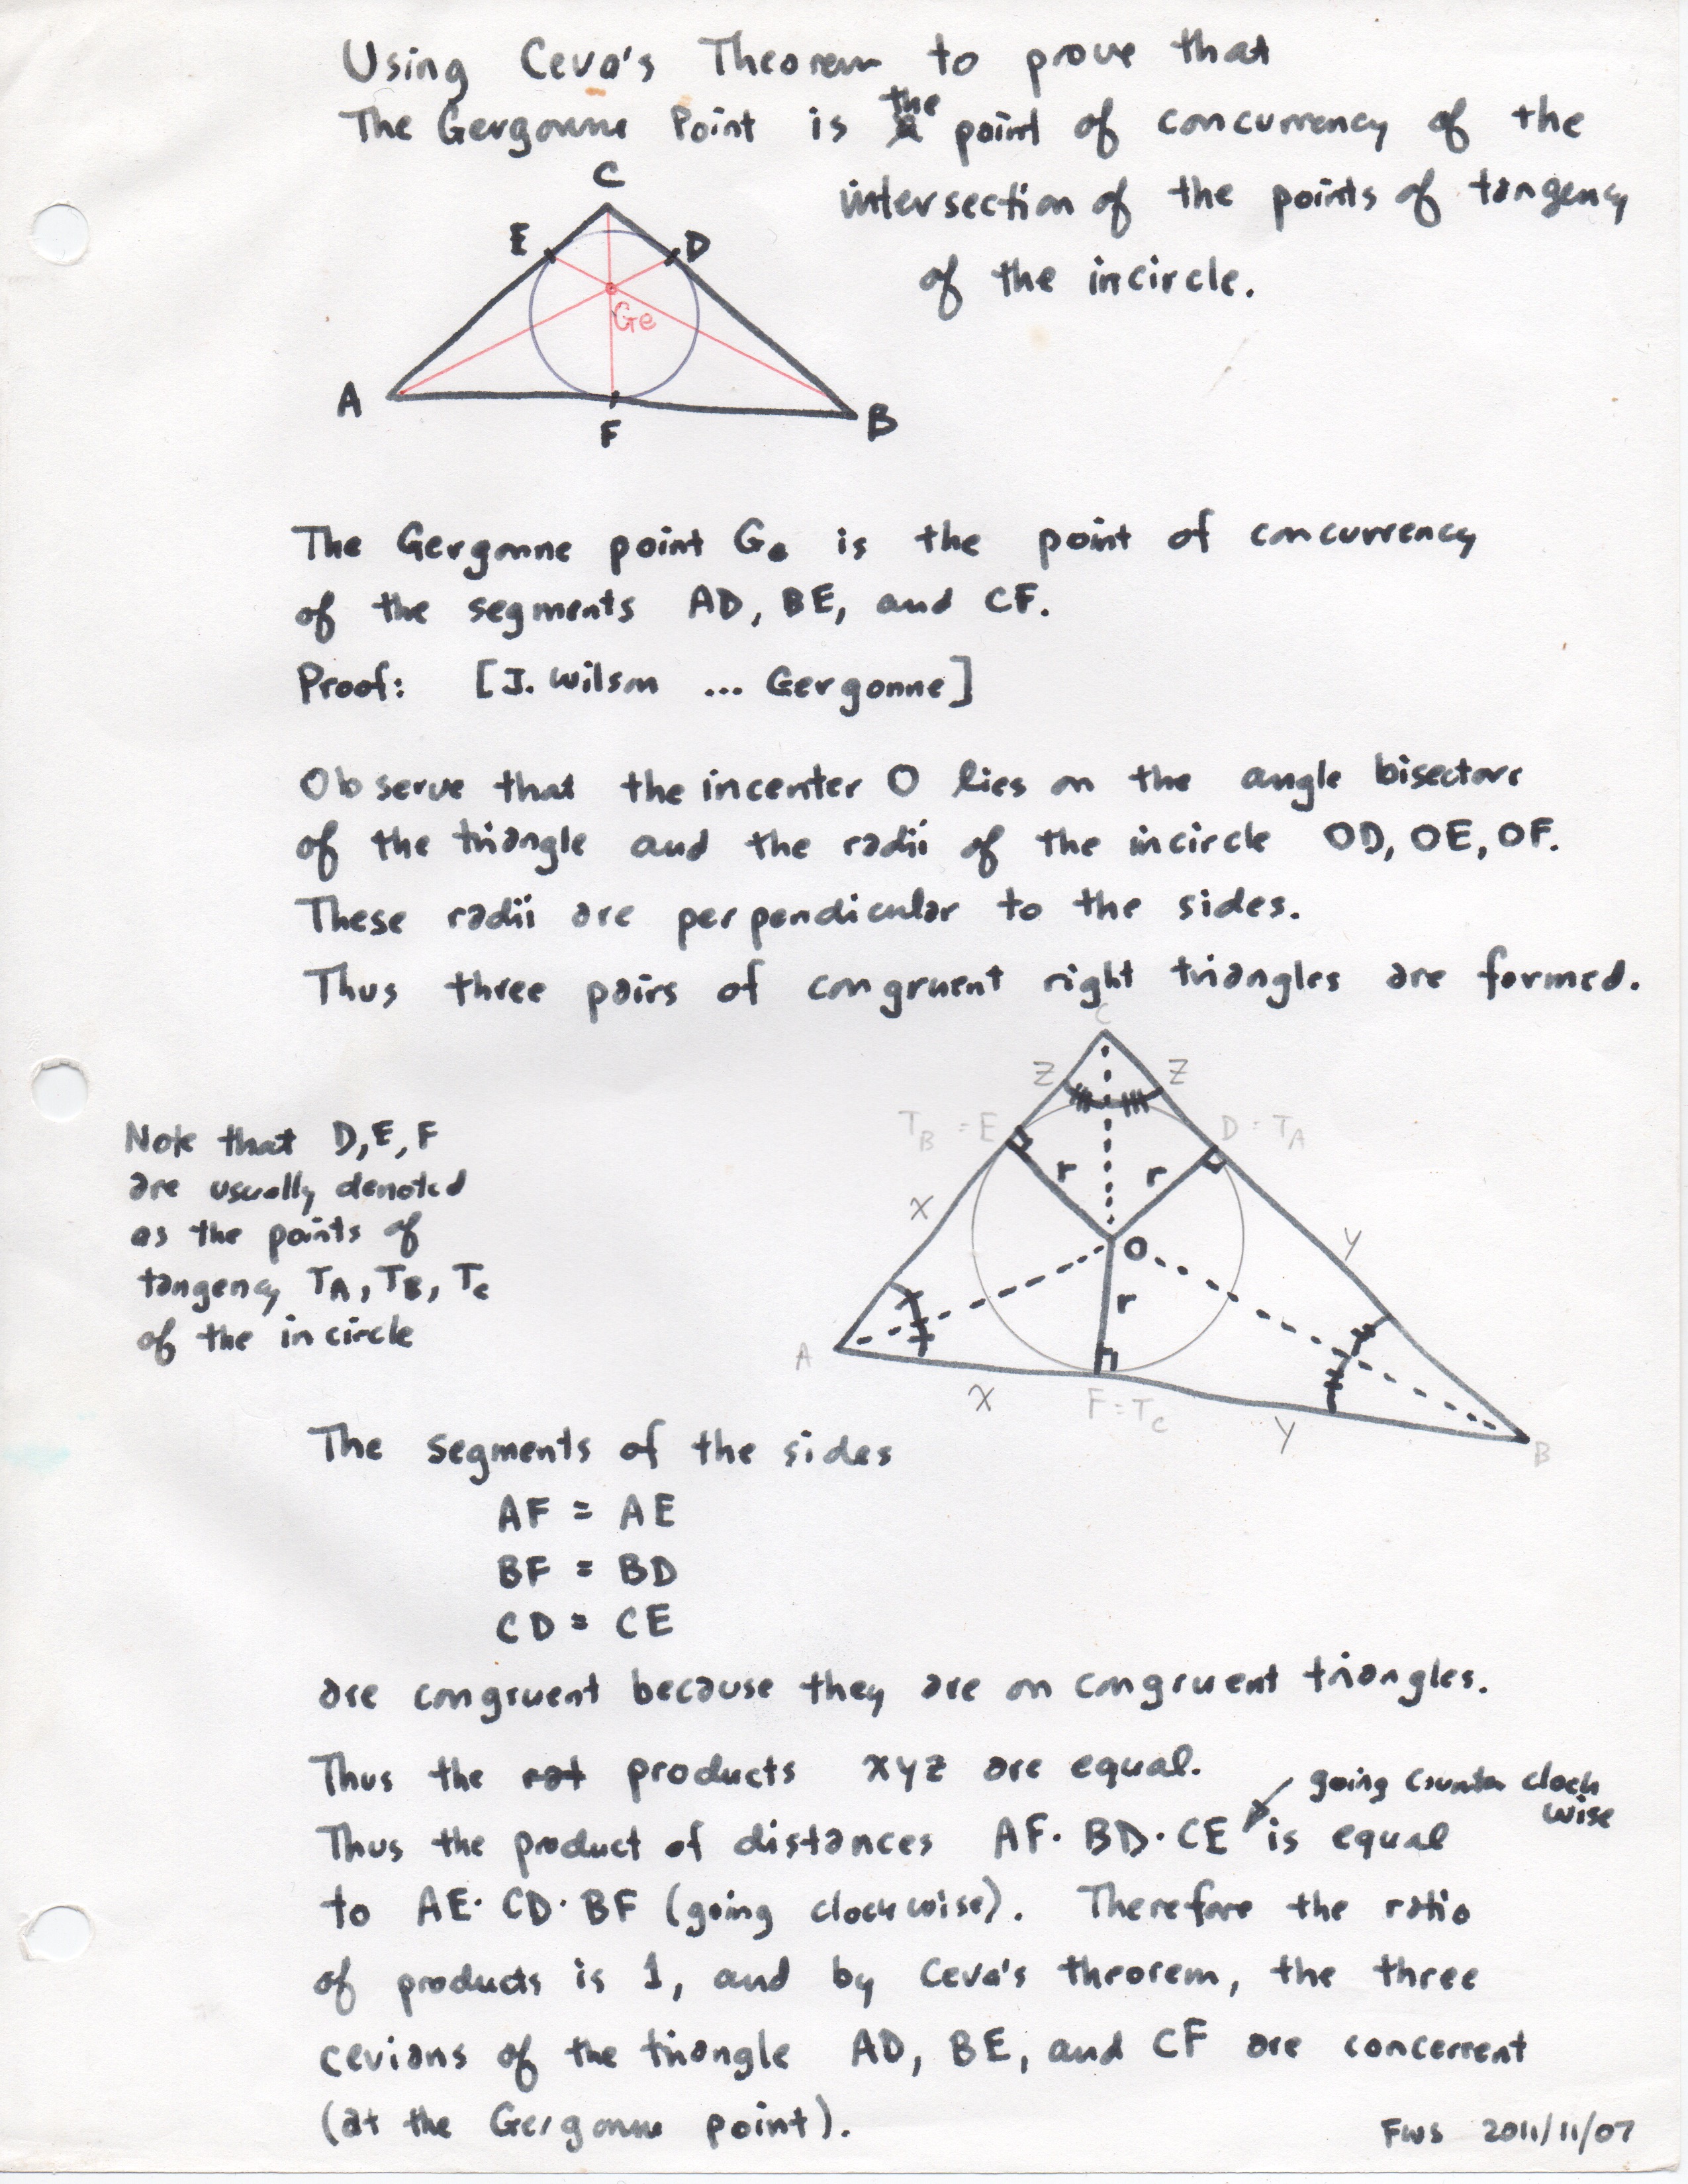 Using Ceva's Theorem to prove that
The Gergonne Point is the point of concurrency of the
intersection of the points of tangency
of the incircle.
C
E
D
Ge
A
F
B
The Gergonne point Ge is the point of concurrency
of the segments AD, BE, and CF.
Proof: [J. Wilson ... Gergonne]
Observe that the incenter O lies on the angle bisectors
of the triangle and the radii of the incircle OD, OE, OF.
These radii are perpendicular to the sides.
Thus three pairs of congruent right triangles are formed.
C
Z Z
TB = E
D = TA
r r
x
y
O
r
A
x
F = Tc
y
B
Note that D, E, F
are usually denoted
as the points of
tangency TA, TB, Tc
of the incircle
The segments of the sides
AF = AE
BF = BD
CD = CE
are congruent because they are on congruent triangles.
Thus the rat products xyz are equal.
going counter clock
wise
Thus the product of distances AF · BD · CE is equal
to AE · CD · BF (going clockwise). Therefore the ratio
of products is 1, and by Ceva's theorem, the three
cevians of the triangle AD, BE, and CF are concerrent
(at the Gergonne point).
FWS 2011/11/07